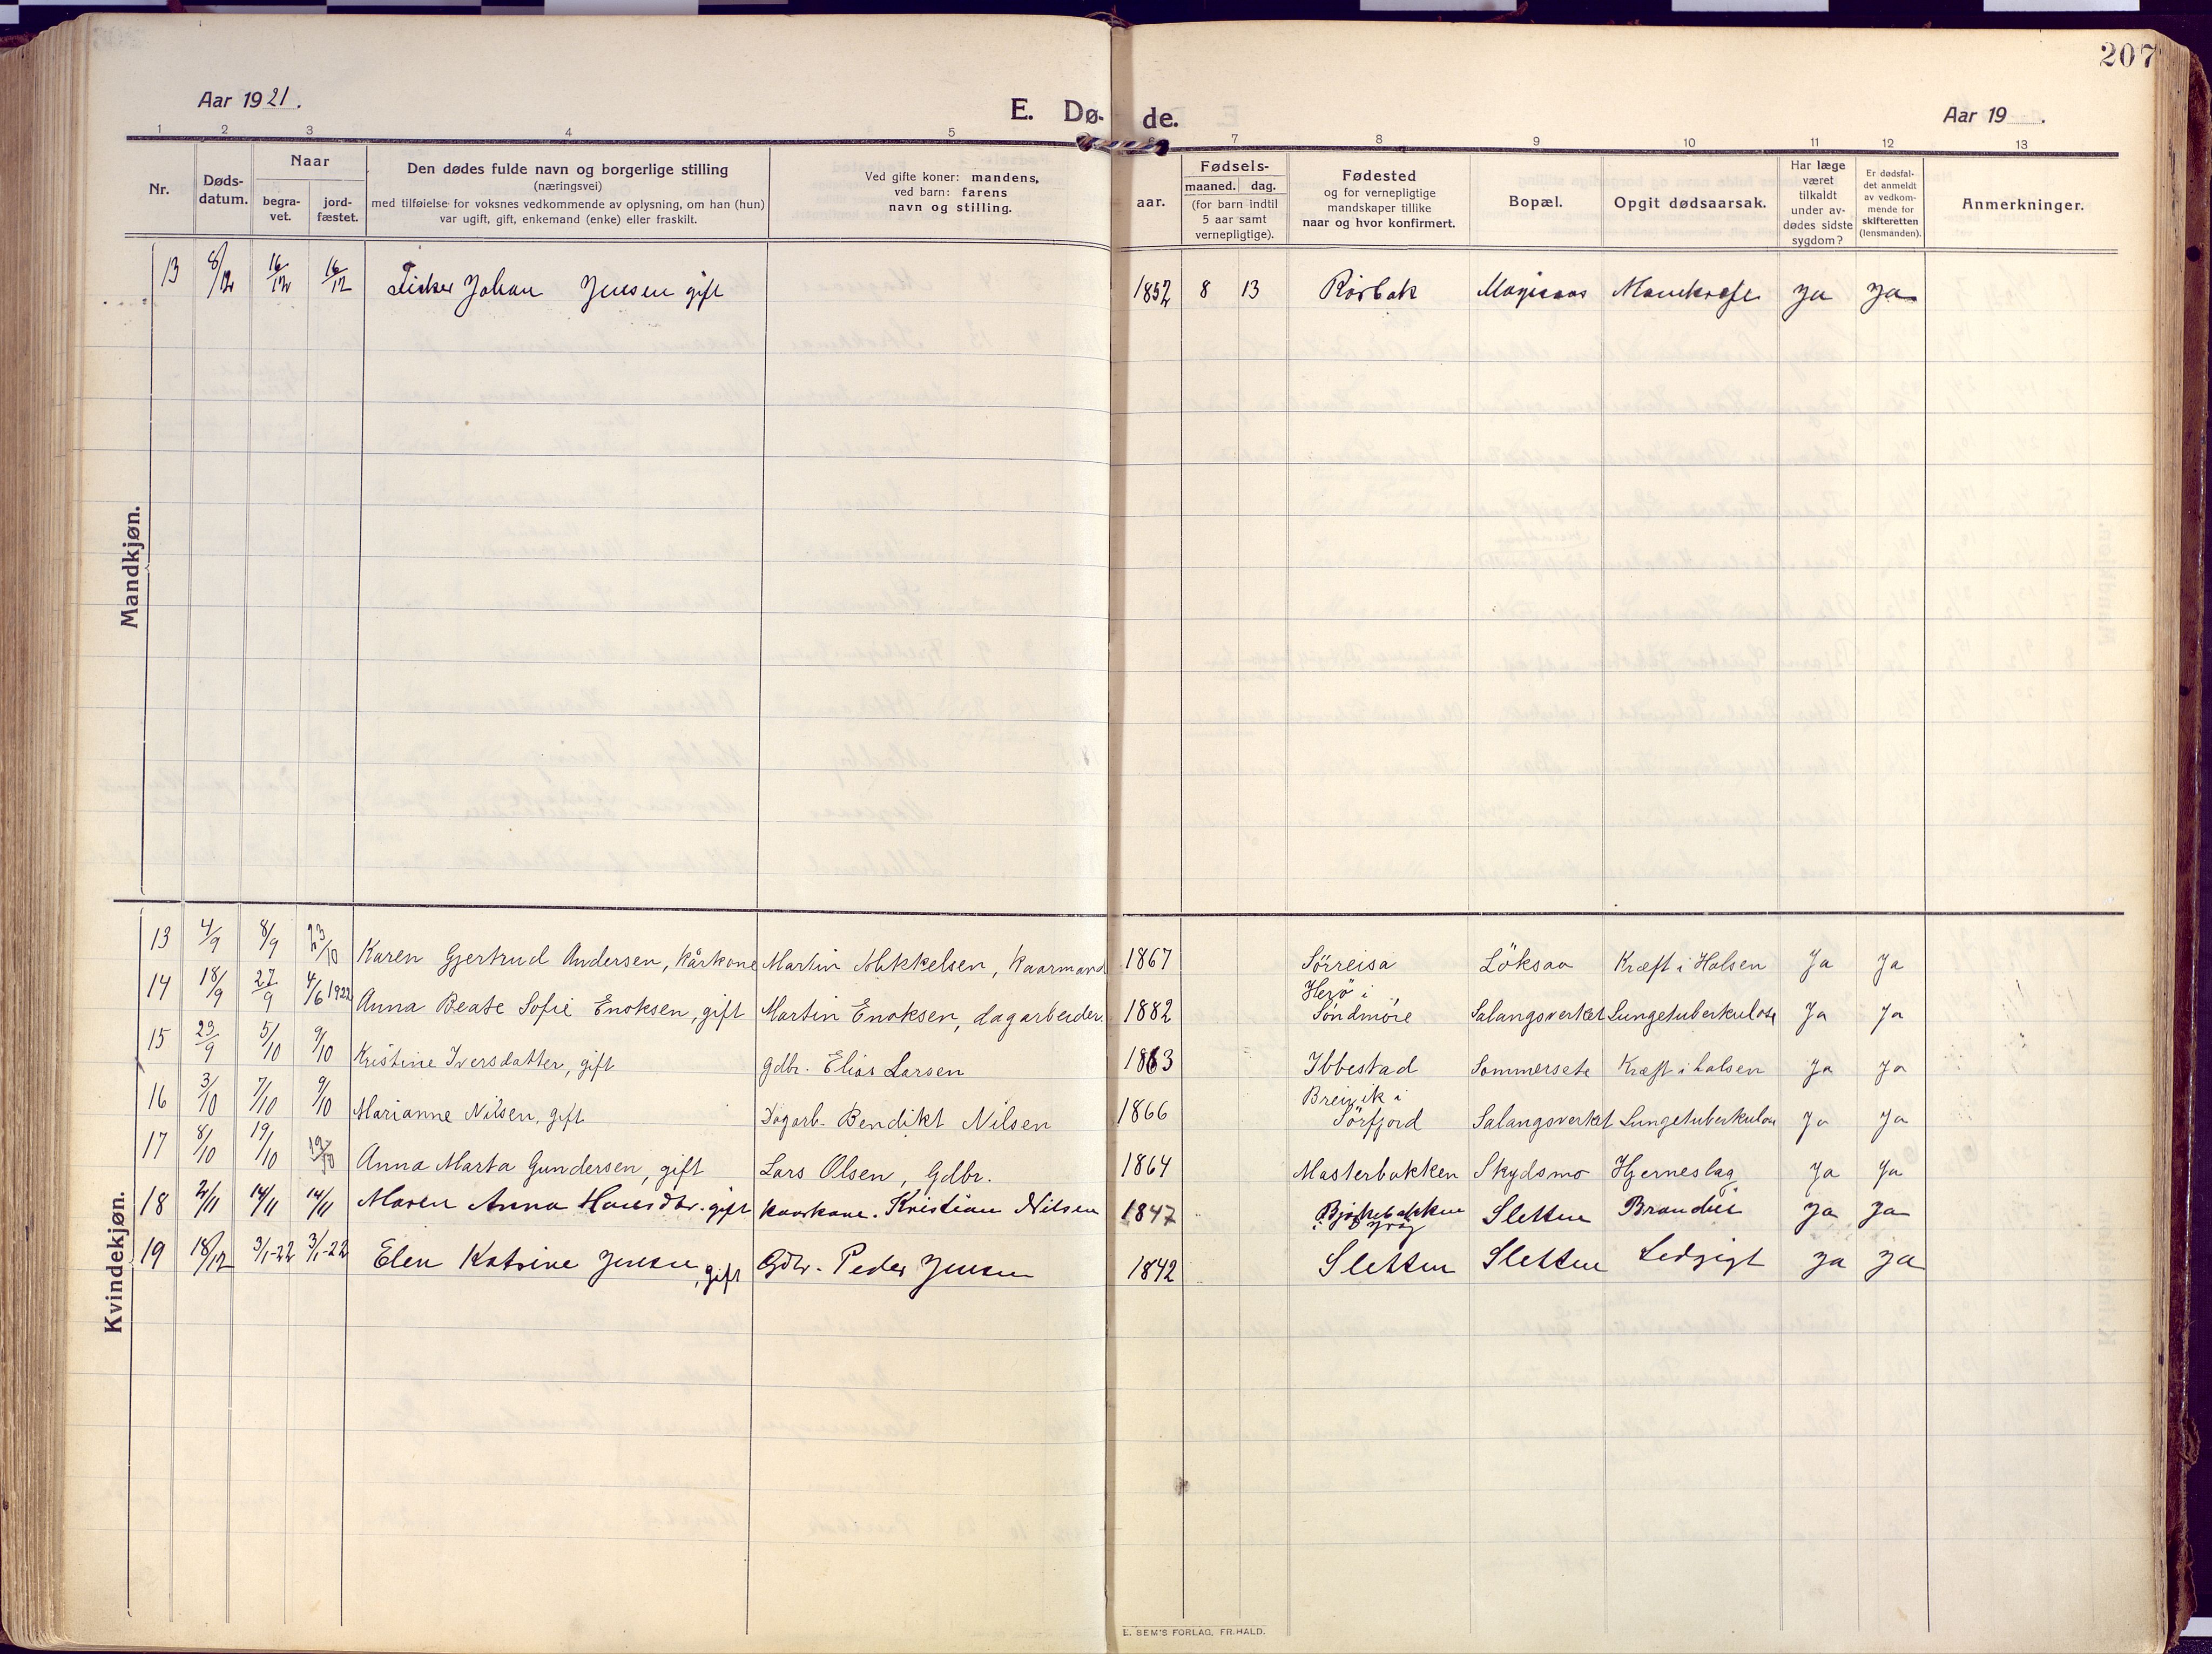 207
Aar 1921.
E. Dø- de.
Aar 19 .
1 2 3 4 5 6 7 8 9 10 11 12 13
Nr.
Døds-
datum.
Naar
begra-
vet.
jord-
fæstet.
Den dødes fulde navn og borgerlige stilling
(næringsvei)
med tilføielse for voksnes vedkommende av oplysning, om han (hun)
var ugift, gift, enkemand (enke) eller fraskilt.
Ved gifte koner: mandens,
ved barn: farens
navn og stilling.
aar.
Fødsels-
maaned. dag.
(for barn indtil
5 aar samt
vernepligtige).
Fødested
og for vernepligtige
mandskaper tillike
naar og hvor konfirmert.
Bopæl.
Opgit dødsaarsak.
Har læge
været
tilkaldt
under av-
dødes sidste
sygdom?
Er dødsfal-
det anmeldt
av vedkom-
mende for
skifteretten
(lensmanden).
Anmerkninger.
Mandkjøn.
13 8/12 16/12 16/12 Fisker Johan Jensen gift 1852 8 13 Rörbak Mavekræft Ja Ja
Kvindekjøn.
13 4/9 8/9 23/10 Karen Gjertrud Andersen, kårkone Martin Mikkelsen, kaarmand 1867 Sörreisa Löksaa Kræft i Halsen Ja Ja
14 18/9 27/9 4/6 1922 Anna Beate Sofie Enoksen, gift Martin Enoksen, dagarbeider. 1882 Herö i Söndmöre Salangsverket Lungetuberkulose Ja Ja
15 29/9 5/10 9/10 Kristine Iversdatter, gift gdbr. Elias Larsen 1863 Ibbestad Sommersete Kræft i halsen Ja Ja
16 3/10 7/10 9/10 Marianne Nilsen, gift Dagarb. Bendikt Nilsen 1866 Breivik i Sörfjord Salangsverket Lungetuberkulose Ja Ja
17 8/10 19/10 19/10 Anna Marta Gundersen, gift Lars Olsen, Gdbr. 1864 Masterbakken Skydsmo Hjerneslag Ja Ja
18 2/11 14/11 14/11 Maren Anna Hansdtr. gift kaarkone. Kristian Nilsen 1847 Bjørkebakken Sletten Ja Ja
19 18/12 3/1-22 3/1-22 Elen Katrine Jensen, gift Gdbr. Peder Jensen 1842 Sletten Sletten Ledgigt Ja Ja
E. SEM'S FORLAG, FR.HALD.